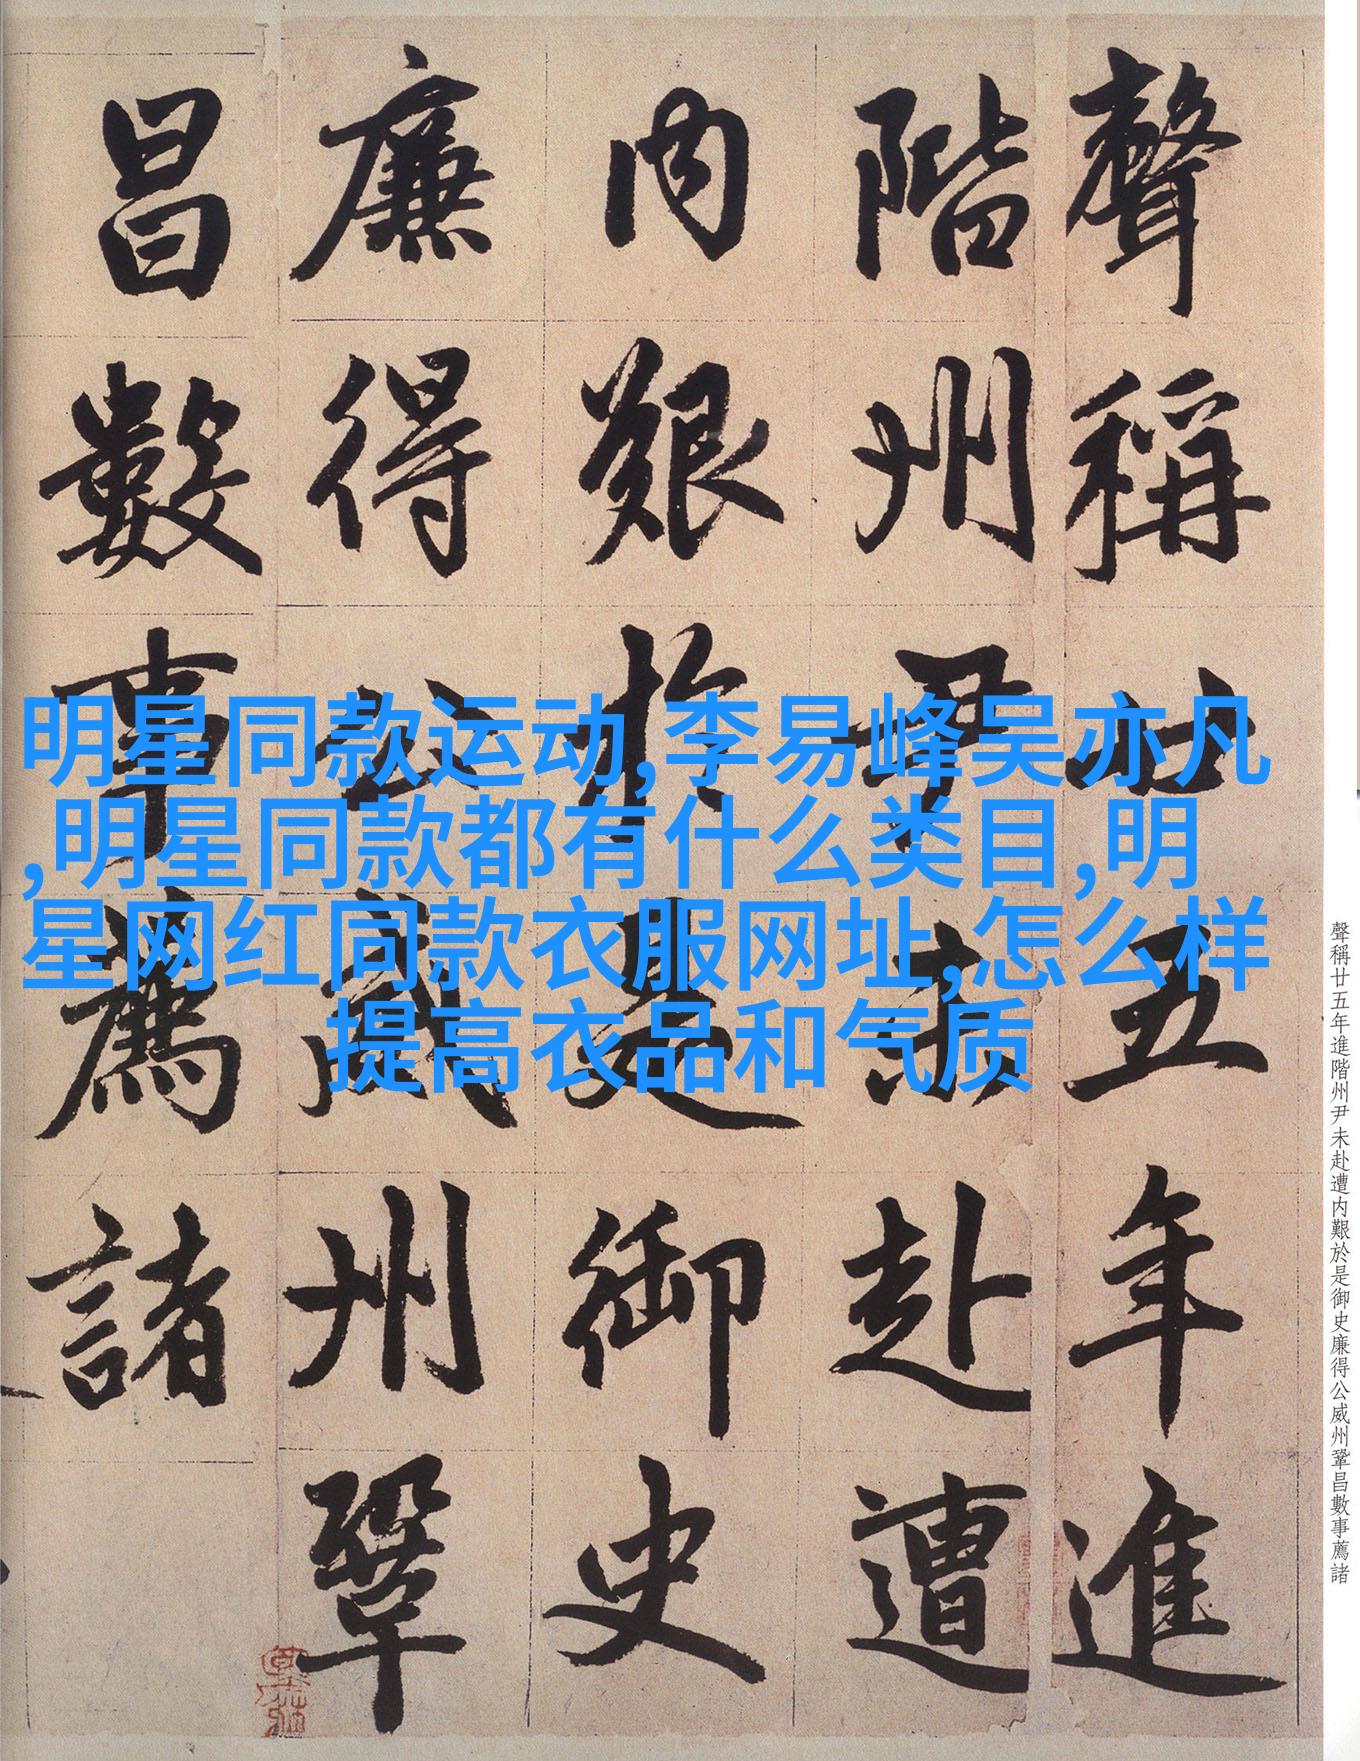 聲稱廿五年進
階州尹未赴遭
内艱於是御史
廉得公威州鞏
昌數事薦諸
明星同款运动,李易峰吴亦凡
,明星同款都有什么类目,明
星网红同款衣服网址,怎么样
提高衣品和气质
聲稱廿五年進階州尹未赴遭内艱於是御史廉得公威州鞏昌數事薦諸